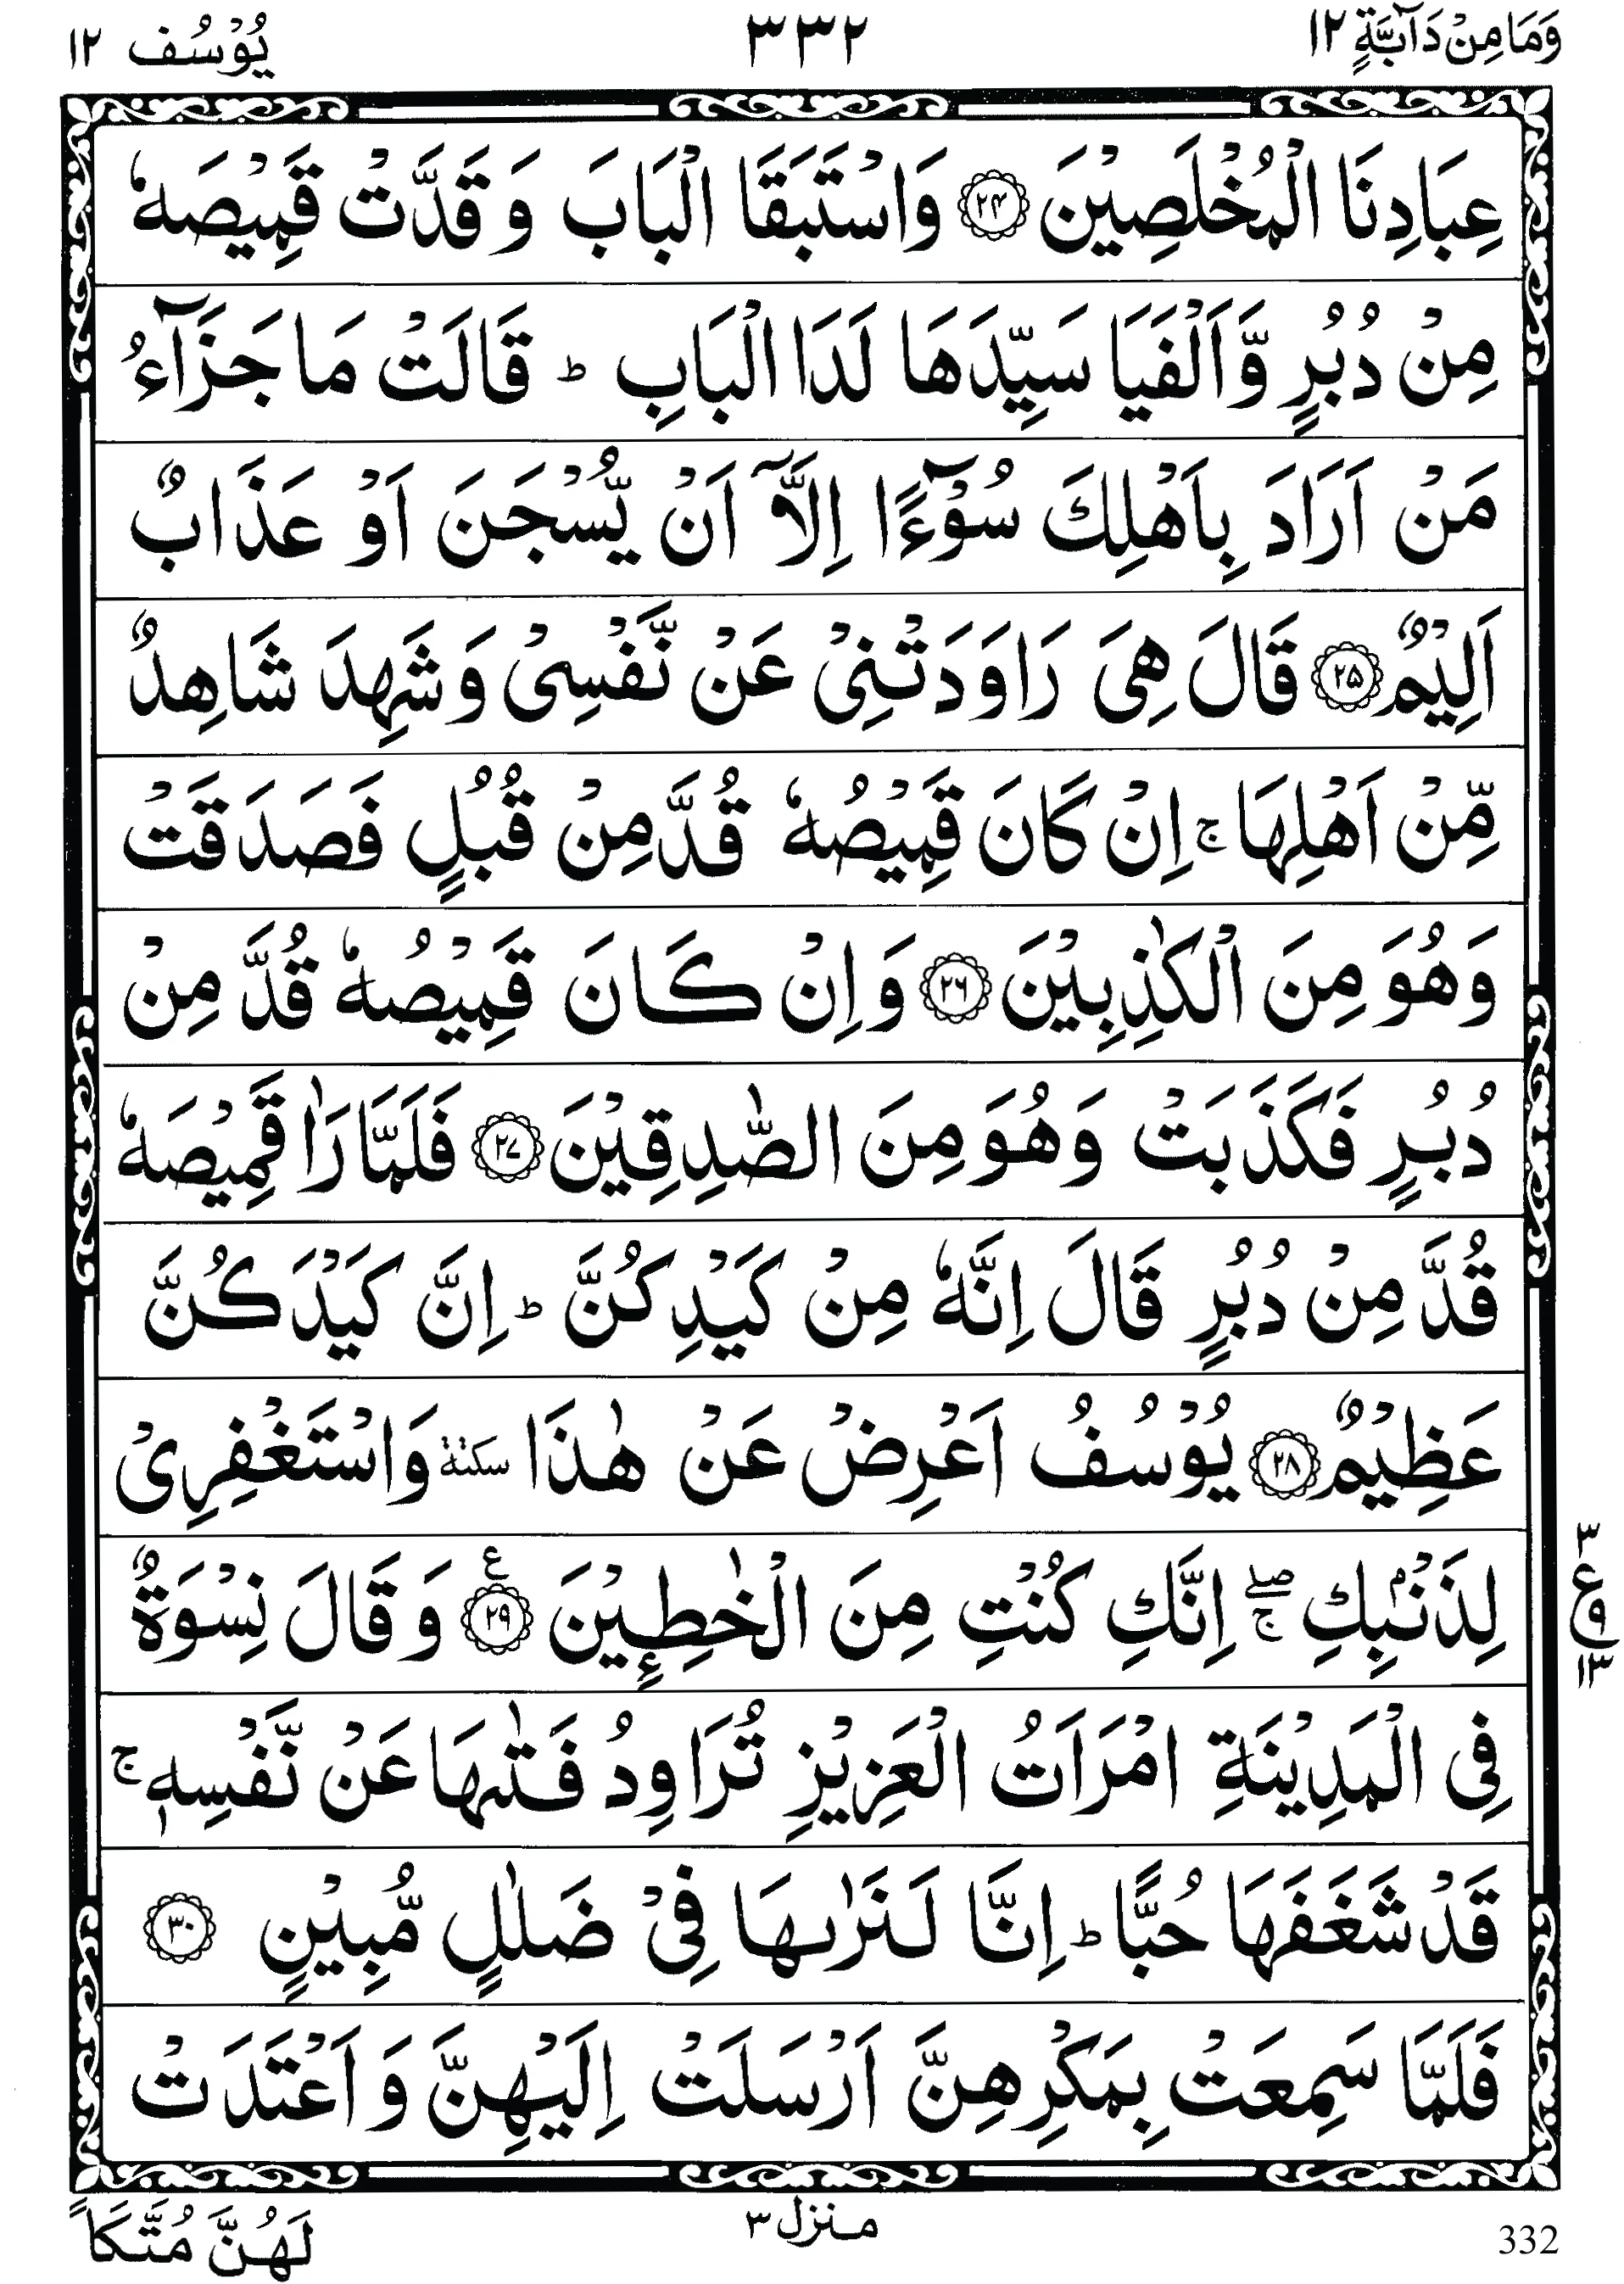 وَمَا مِنْ دَآبَّةٍ ١٢ ٣٣٢ يُوْسُف ١٢
عِبَادِنَا الْمُخْلَصِيْنَ ۝٢٤ وَاسْتَبَقَا الْبَابَ وَ قَدَّتْ قَمِيْصَهٗ
مِنْ دُبُرٍ وَّاَلْفَيَا سَيِّدَهَا لَدَا الْبَابِ ؕ قَالَتْ مَا جَزَآءُ
مَنْ اَرَادَ بِاَهْلِكَ سُوْٓءًا اِلَّاۤ اَنْ يُّسْجَنَ اَوْ عَذَابٌ
اَلِيْمٌ ۝٢٥ قَالَ هِیَ رَاوَدَتْنِیْ عَنْ نَّفْسِیْ وَشَهِدَ شَاهِدٌ
مِّنْ اَهْلِهَا ۚ اِنْ كَانَ قَمِيْصُهٗ قُدَّ مِنْ قُبُلٍ فَصَدَقَتْ
وَهُوَ مِنَ الْكٰذِبِيْنَ ۝٢٦ وَاِنْ كَانَ قَمِيْصُهٗ قُدَّ مِنْ
دُبُرٍ فَكَذَبَتْ وَهُوَ مِنَ الصّٰدِقِيْنَ ۝٢٧ فَلَمَّا رَاٰ قَمِيْصَهٗ
قُدَّ مِنْ دُبُرٍ قَالَ اِنَّهٗ مِنْ كَيْدِكُنَّ ؕ اِنَّ كَيْدَكُنَّ
عَظِيْمٌ ۝٢٨ يُوْسُفُ اَعْرِضْ عَنْ هٰذَا سكتة وَاسْتَغْفِرِیْ
لِذَنْۢبِكِ ۖۚ اِنَّكِ كُنْتِ مِنَ الْخٰطِـِٕيْنَ ۝٢٩ ع وَ قَالَ نِسْوَةٌ
فِی الْمَدِيْنَةِ امْرَاَتُ الْعَزِيْزِ تُرَاوِدُ فَتٰىهَا عَنْ نَّفْسِهٖ ۚ
قَدْ شَغَفَهَا حُبًّا ؕ اِنَّا لَنَرٰىهَا فِیْ ضَلٰلٍ مُّبِيْنٍ ۝٣٠
فَلَمَّا سَمِعَتْ بِمَكْرِهِنَّ اَرْسَلَتْ اِلَيْهِنَّ وَ اَعْتَدَتْ
٣
ع ٩
١٣
لَهُنَّ مُتَّكَاً منزل ٣ 332